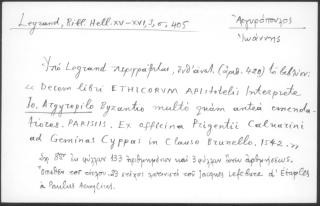 Legrand, Bibl. Hell. XV-XVI, 3, σ. 405
Ἀργυρόπουλος
Ἰωάννης
Ὑπὸ Legrand περιγράφεται, (ἀριθ. 420) τὸ βιβλίον:
« Decem libri ETHICORUM ARISTOTELIS Interprete
Io. Argyropilo Byzantio multò quàm anteà emenda-
tiores. PARISIIS. Ex officina Prigentii Calvarini
ad Geminas Cyppas in Clauso Brunello, 1542. »
Σχ. 8ον ἐκ φύλλων 133 ἠριθμημένων καὶ 3 φύλλων ἄνευ ἀριθμήσεως.
Ὄπισθεν τοῦ τίτλου 23 στίχοι τοῦ Jacques Lefebvre d'Étaples
à Paulus